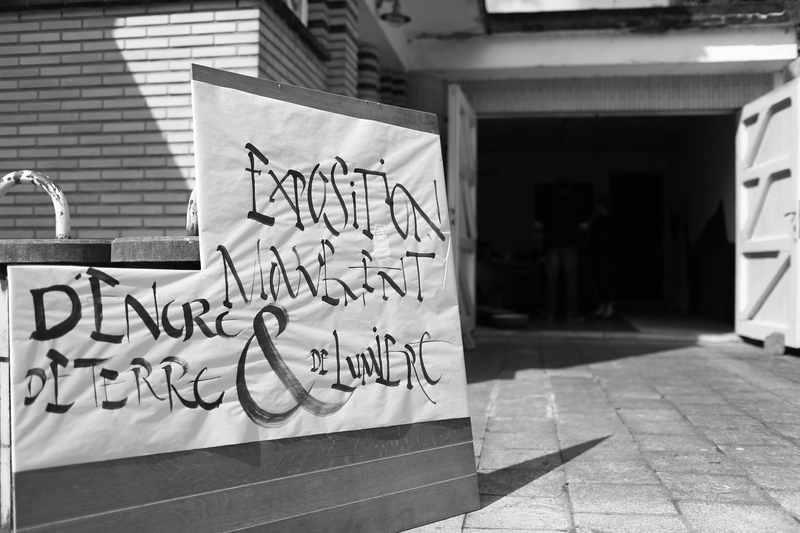 EXPOSITION
D'ENCRE
DE TERRE & DE LUMIÈRE